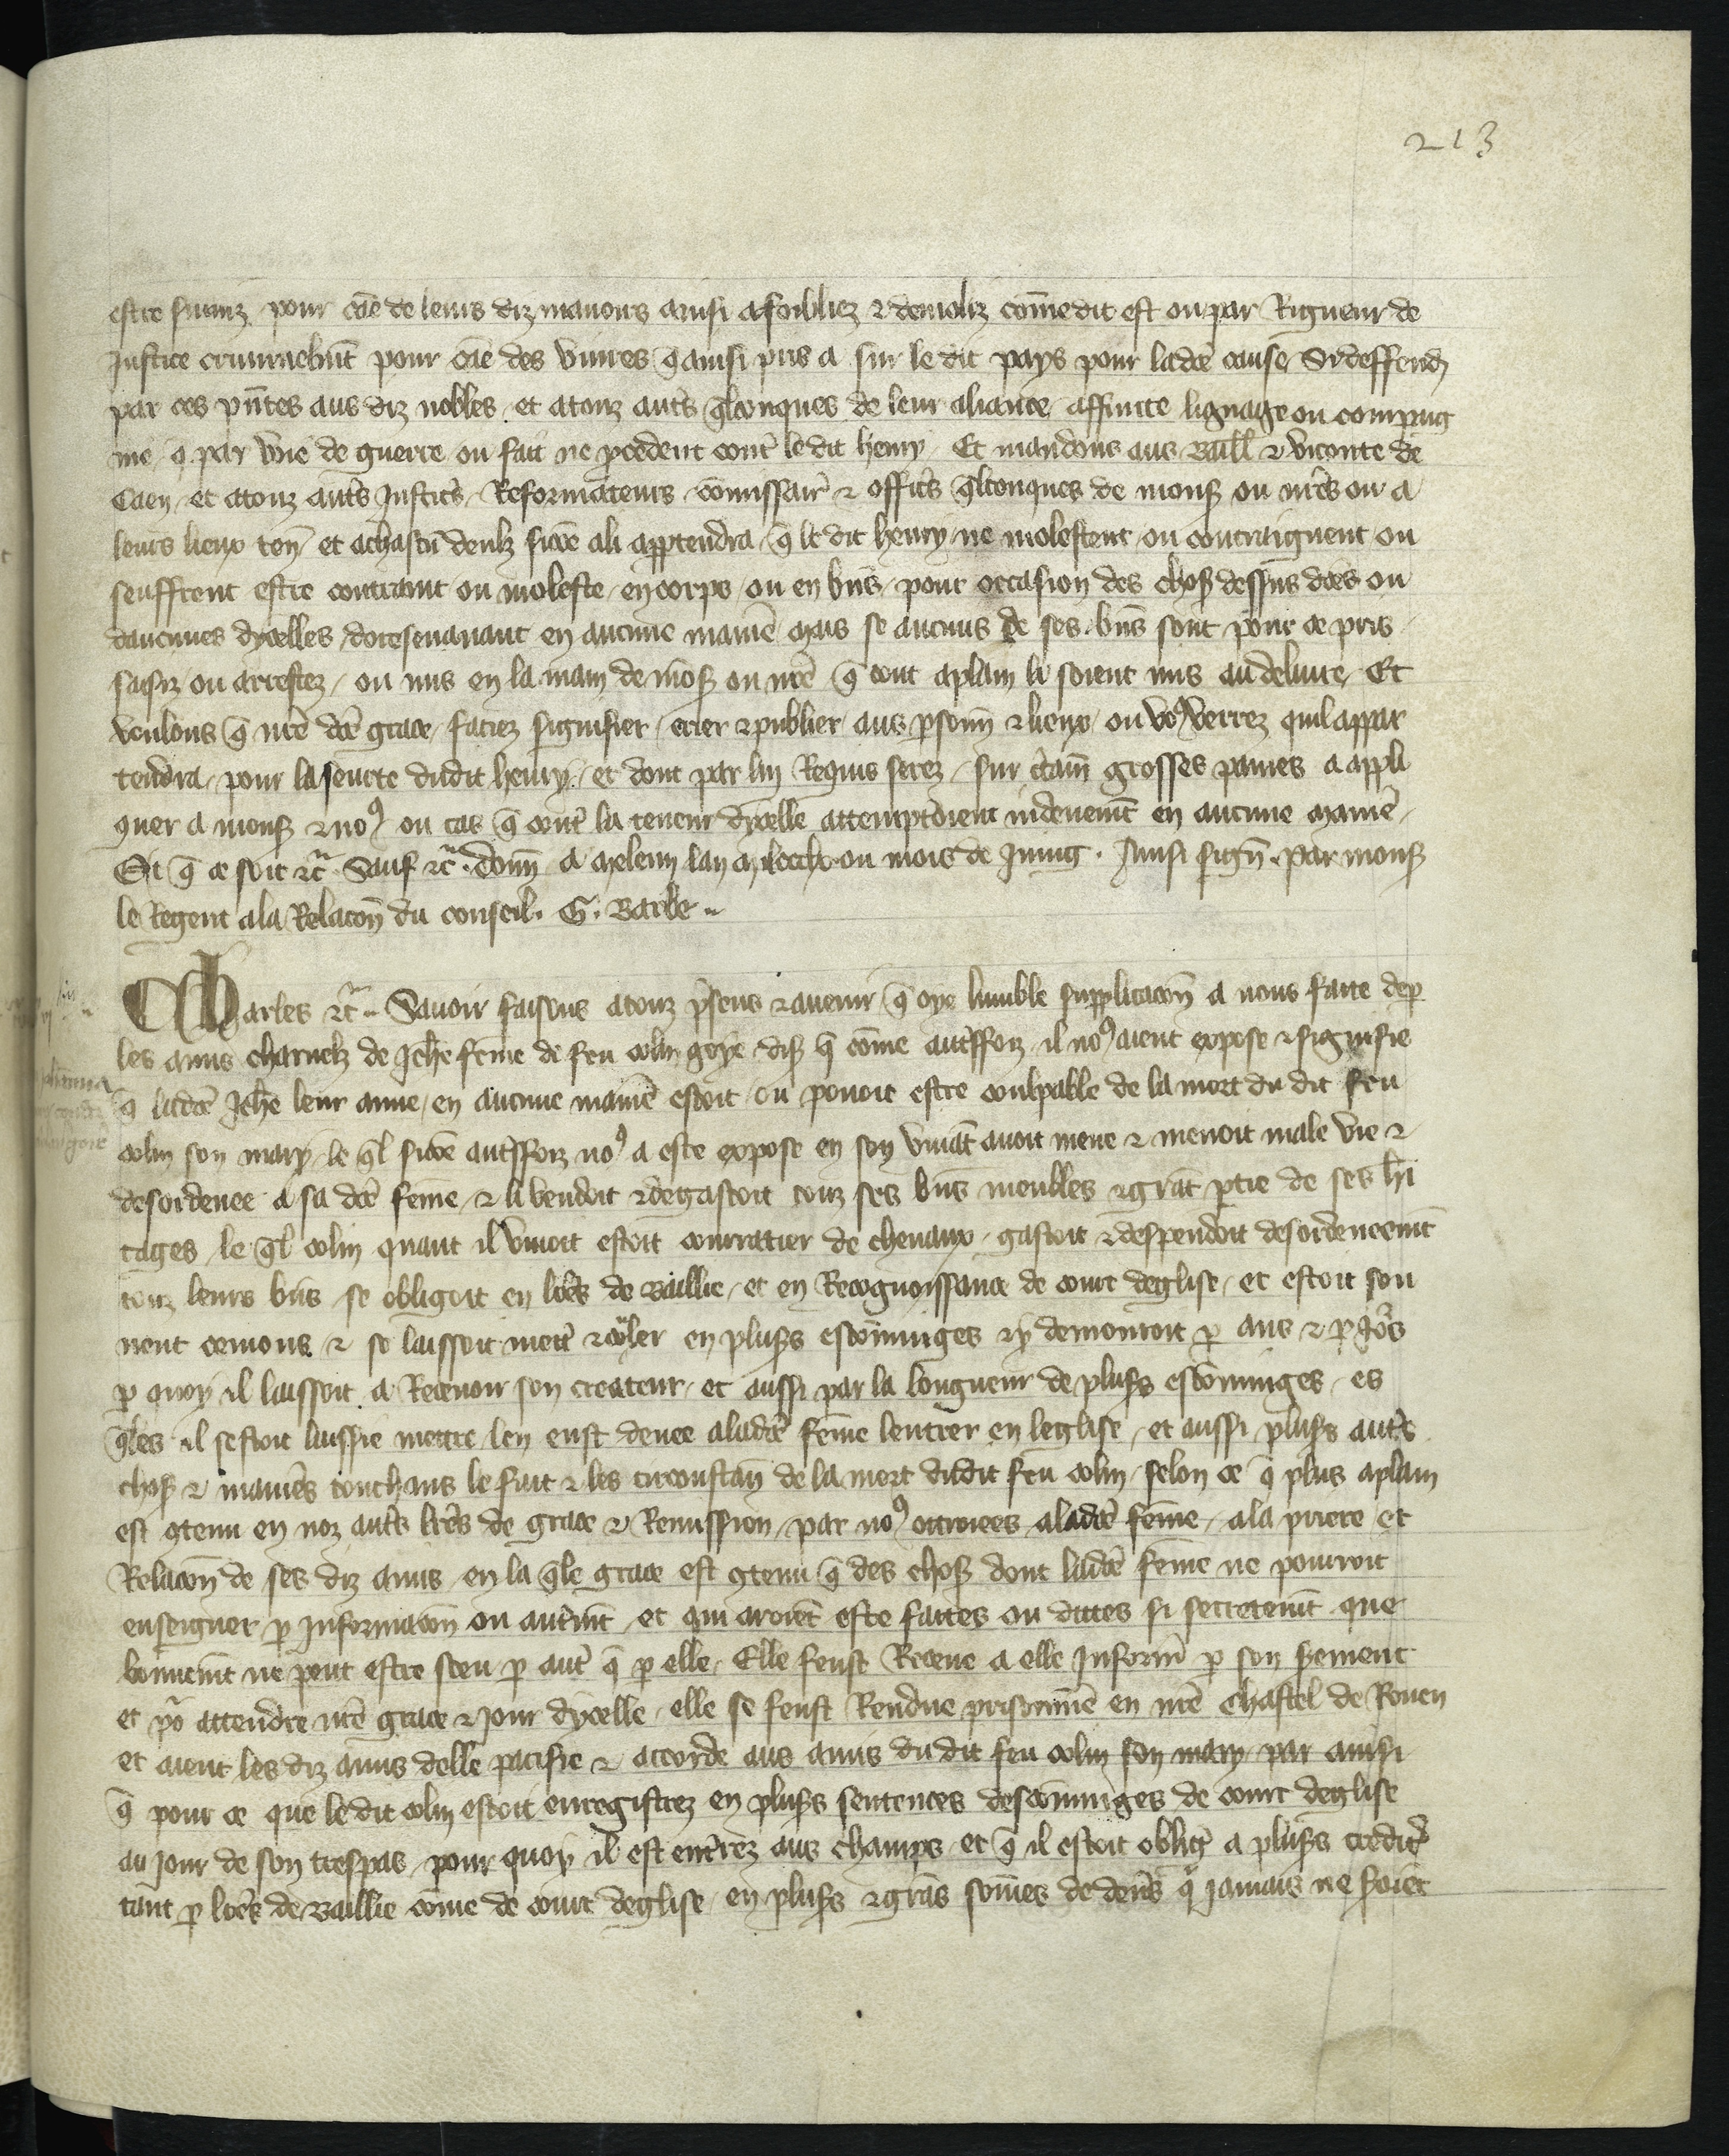 213
estre suianz pour cãe de leurs diz manoirs ainsi afoibliez & demoliz cõme dit est ou par Rigueur de
justice criminebñt pour cãe des viures q̃ ainsi pris a sur le dit pays pour ladcẽ cause Si deffend
par ces pñtes aus diz nobles et atouz autˢ q̃lconques de leur aliance affinite lignage ou compaig
nie q̃ par voie de guerre ou fait ne pcedent contˢ le dit henry Et mandons aus Baill & viconte de
Caen et atouz autˢ justicˢ Reformateurs cõmissairˢ & officˢ q̃lconques de monsʳ ou nr̃es ou a
leurs lieux teñ et achascũ deulz sicõe ali appˢtendra q̃ le dit henry ne molestent ou contraignent ou
seuffrent estre contraint ou moleste en corps ou en bñs pour occasion des chosˢ dessus dcẽs ou
daucunes dycelles doresenauant en aucune maniẽ Mais se aucuns de ses bñs sont pour ce pris
saisiz ou arrestez ou mis en la main de monsʳ ou nr̃e q̃ tout aplain li soient mis au deliure Et
voulons q̃ nr̃e dcẽ grace faciez signifier crier & publier aus psonñ & lieux ou voꝰ verrez quil appar
tendra pour la seurte dudit henry et dont par lui Requis serez sur ctaiñ grosses paines a appli
quer a monsʳ & noꝰ ou cas q̃ contˢ la teneur dycelle attemptˢoient indeuemt̃ en aucune maniẽ
Et q̃ ce soit &c̃ Sauf &c̃ donñ a Meleun lan Mil ccclx ou mois de juing. Ainsi signˢ. Par monsʳ
le Regent ala Relacoñ du conseil. G. Barbe
Charles &c̃ Sauoir faisons atouz pˢsens & auenir q̃ oye lumble supplicacoñ a nous faite dep
les amis charnelz de Jehẽ fem̃e de feu colin goye disˢ q̃ cõme autˢffoiz il noꝰ aient expose & signifie
q̃ ladcẽ Jehẽ leur amie en aucune maniẽ estoit ou pouoit estre coulpable de la mort du dit feu
colin son mary le q̃l sicõe autˢffoiz noꝰ a este expose en son viuãt auoit mene & menoit male vie &
desordenee a sa dcẽ fem̃e & li vendoit & degastoit touz ses bñs meubles & grãt ptie de ses hˢi
tages le q̃l colin quant il viuoit estoit courratier de cheuaux gastoit & despendoit desordeneemt̃
touz leurs bñs se obligoit en lr̃es de Baillie et en Recognoissance de court deglise et estoit sou
uent cemons & se laissoit mettˢ & couler en plusˢs escõminges & y demouroit p ans & p joˢs
p quoy il laissoit a Receuoir son createur et aussi par la longueur de plusˢs escõminges es
q̃les il sestoit laissie mettre len eust denee aladcẽ fem̃e lentrer en leglise et aussi plusˢs autˢs
chosˢ & maniẽs touchans le fait & les circonstañ de la mort dudit feu colin selon ce q̃ plus aplain
est ꝯtenu en noz autˢs lr̃es de grace & Remission par noꝰ ottroiees aladcẽ fem̃e ala priere et
Relacoñ de ses diz amis en la q̃le grace est ꝯtenu q̃ des chosˢ dont ladcẽ fem̃e ne pourroit
enseigner p jnformacoñ ou autˢmt̃ et qui aroiẽt este faites ou dittes si secretemt̃ que
bonnemt̃ ne peut estre sceu p autˢ q̃ p elle Elle feust Receue a elle jnformˢ p son sˢement
et poˢ attendre nr̃e grace & jouir dycelle elle se feust Rendue prisonniẽ en nr̃e Chastel de Rouen
et aient les diz amis delle pacifie & accorde aus amis du dit feu colin son mary par ainsi
q̃ pour ce que le dit colin estoit enregistrez en plusˢs sentences descõminges de court deglise
au jour de son trespas pour quoy il est entˢrez aus champs et q̃ il estoit obligˢ a plusˢs creditˢ
tant p lr̃es de Baillie cõme de court deglise en plusˢs & grãs som̃es de denˢs q̃ jamais ne sˢoiẽt